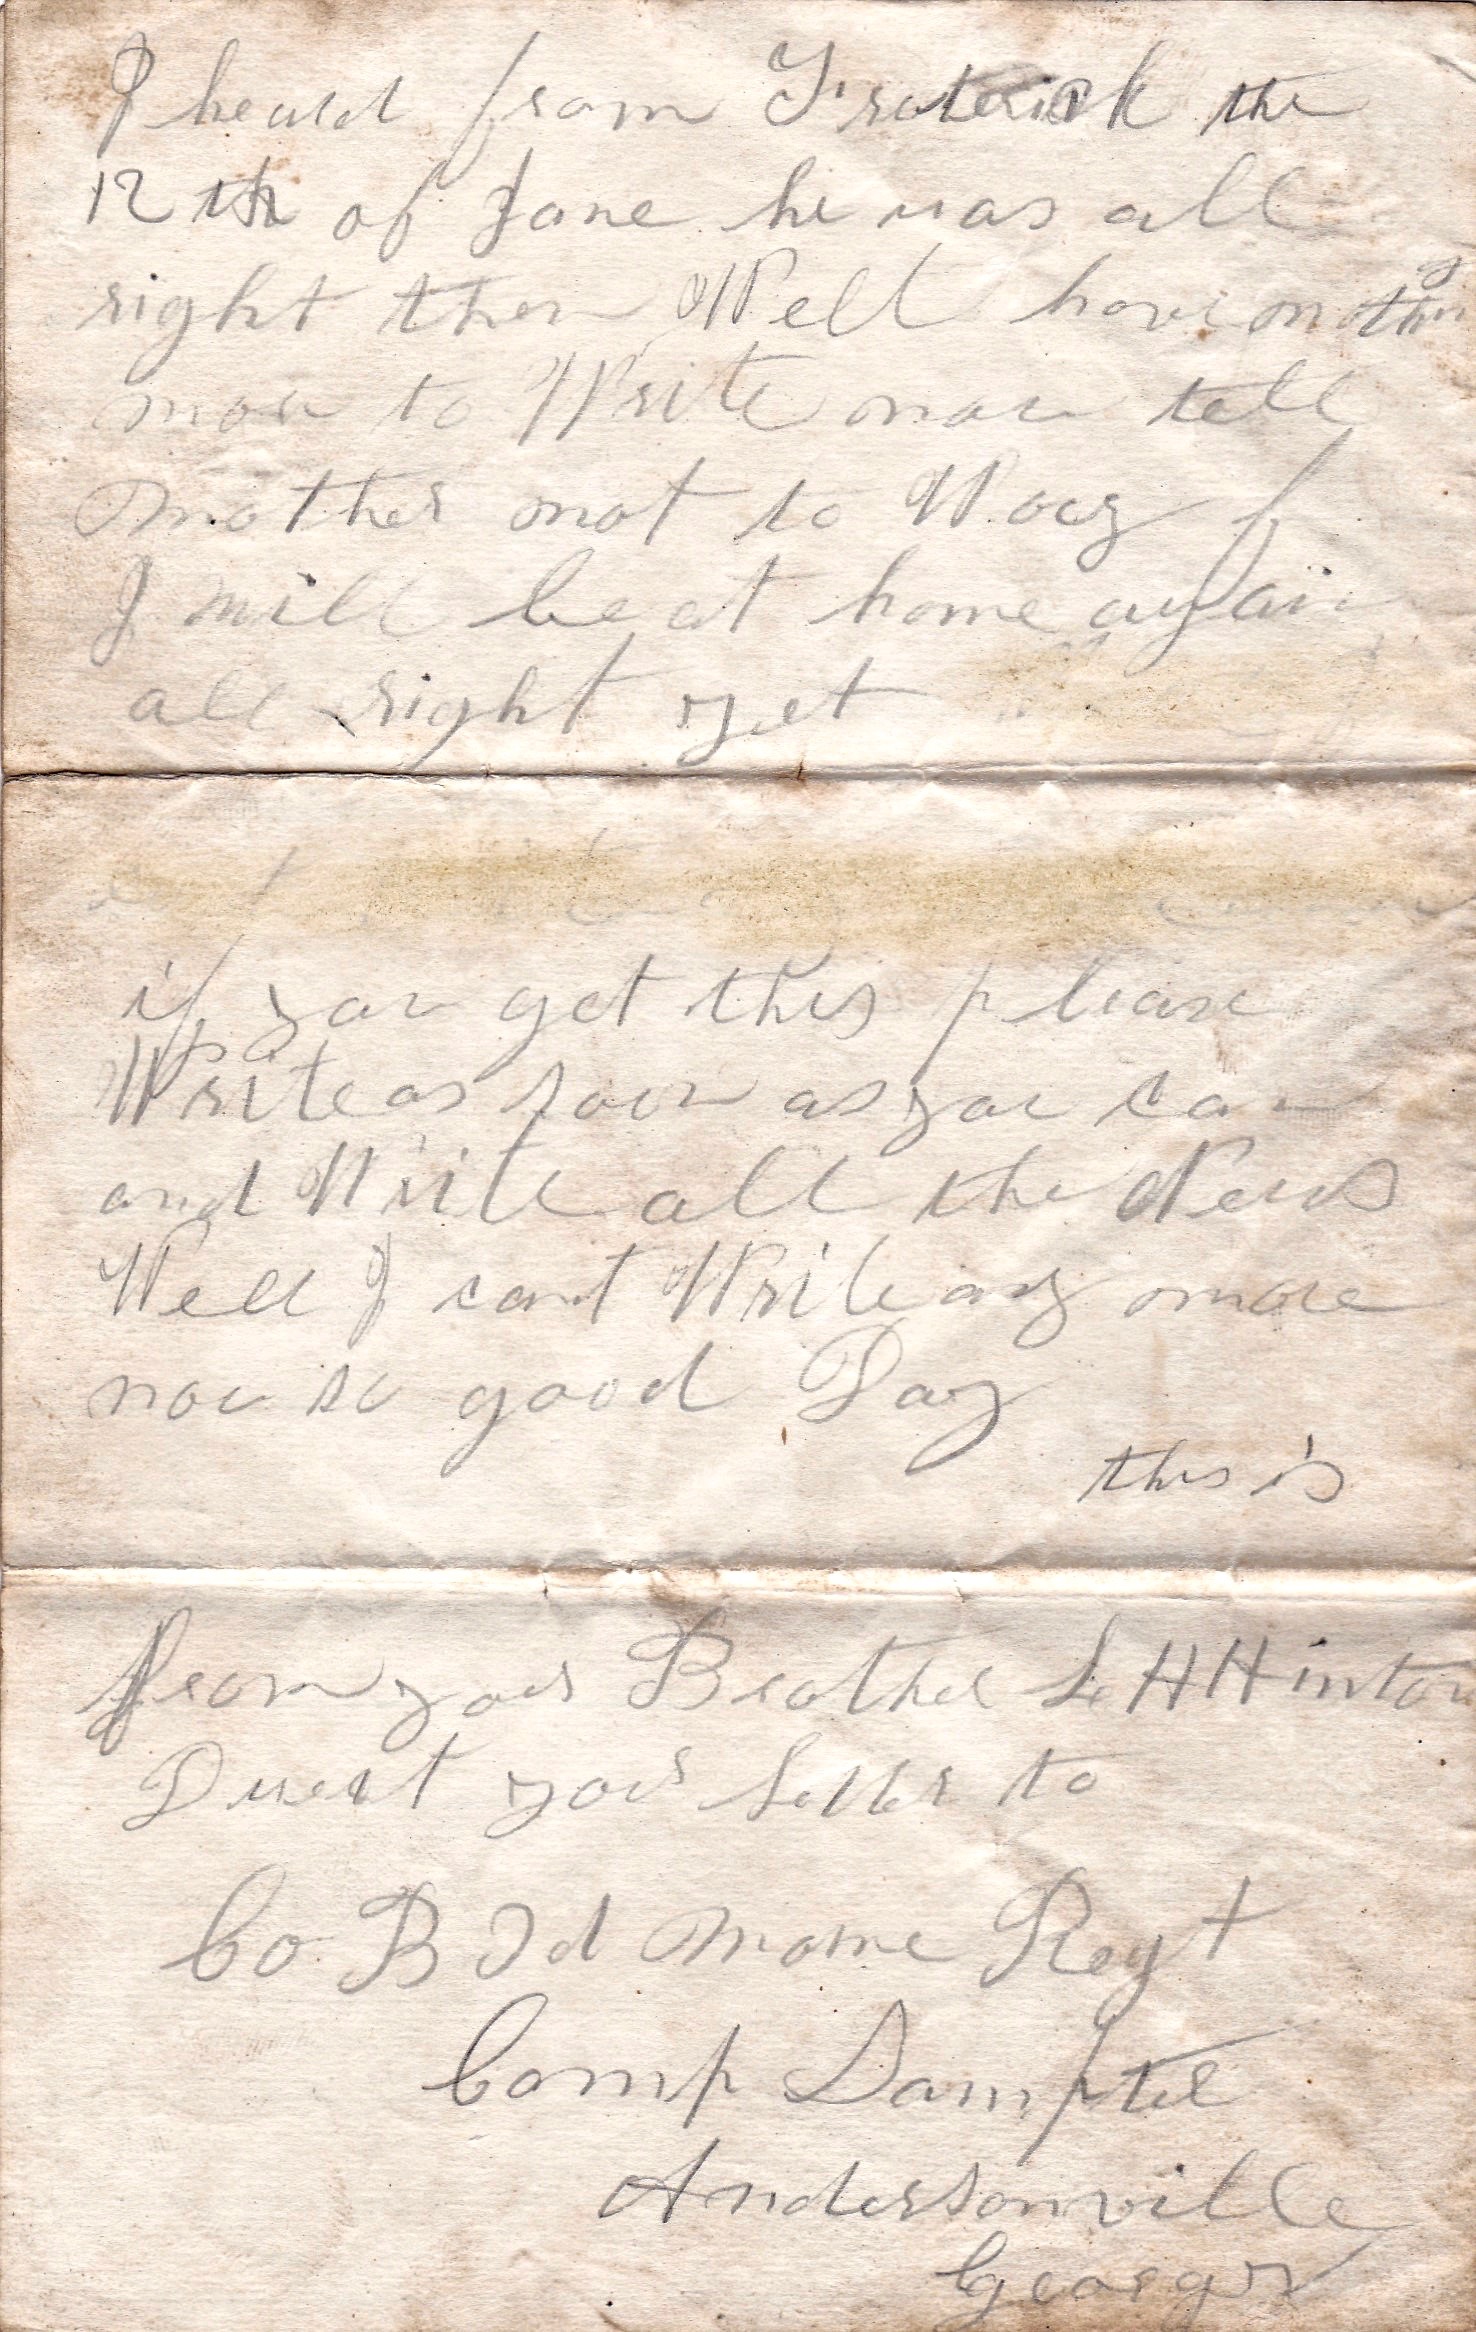 I heard from Fraterick the
12th of June he was all
right then Well have nothing
mor to Write now tell
Mother not to Wory
I will be at home again
all right yet
if you get this please
Write as soon as you can
and Write all the News
Well I cant Write any more
now so good Day
this is
from your Brother L H Hinton
Direct your Letter to
Co B 3d Maine Regt
Comp Sampter
Andersonville
Georgr